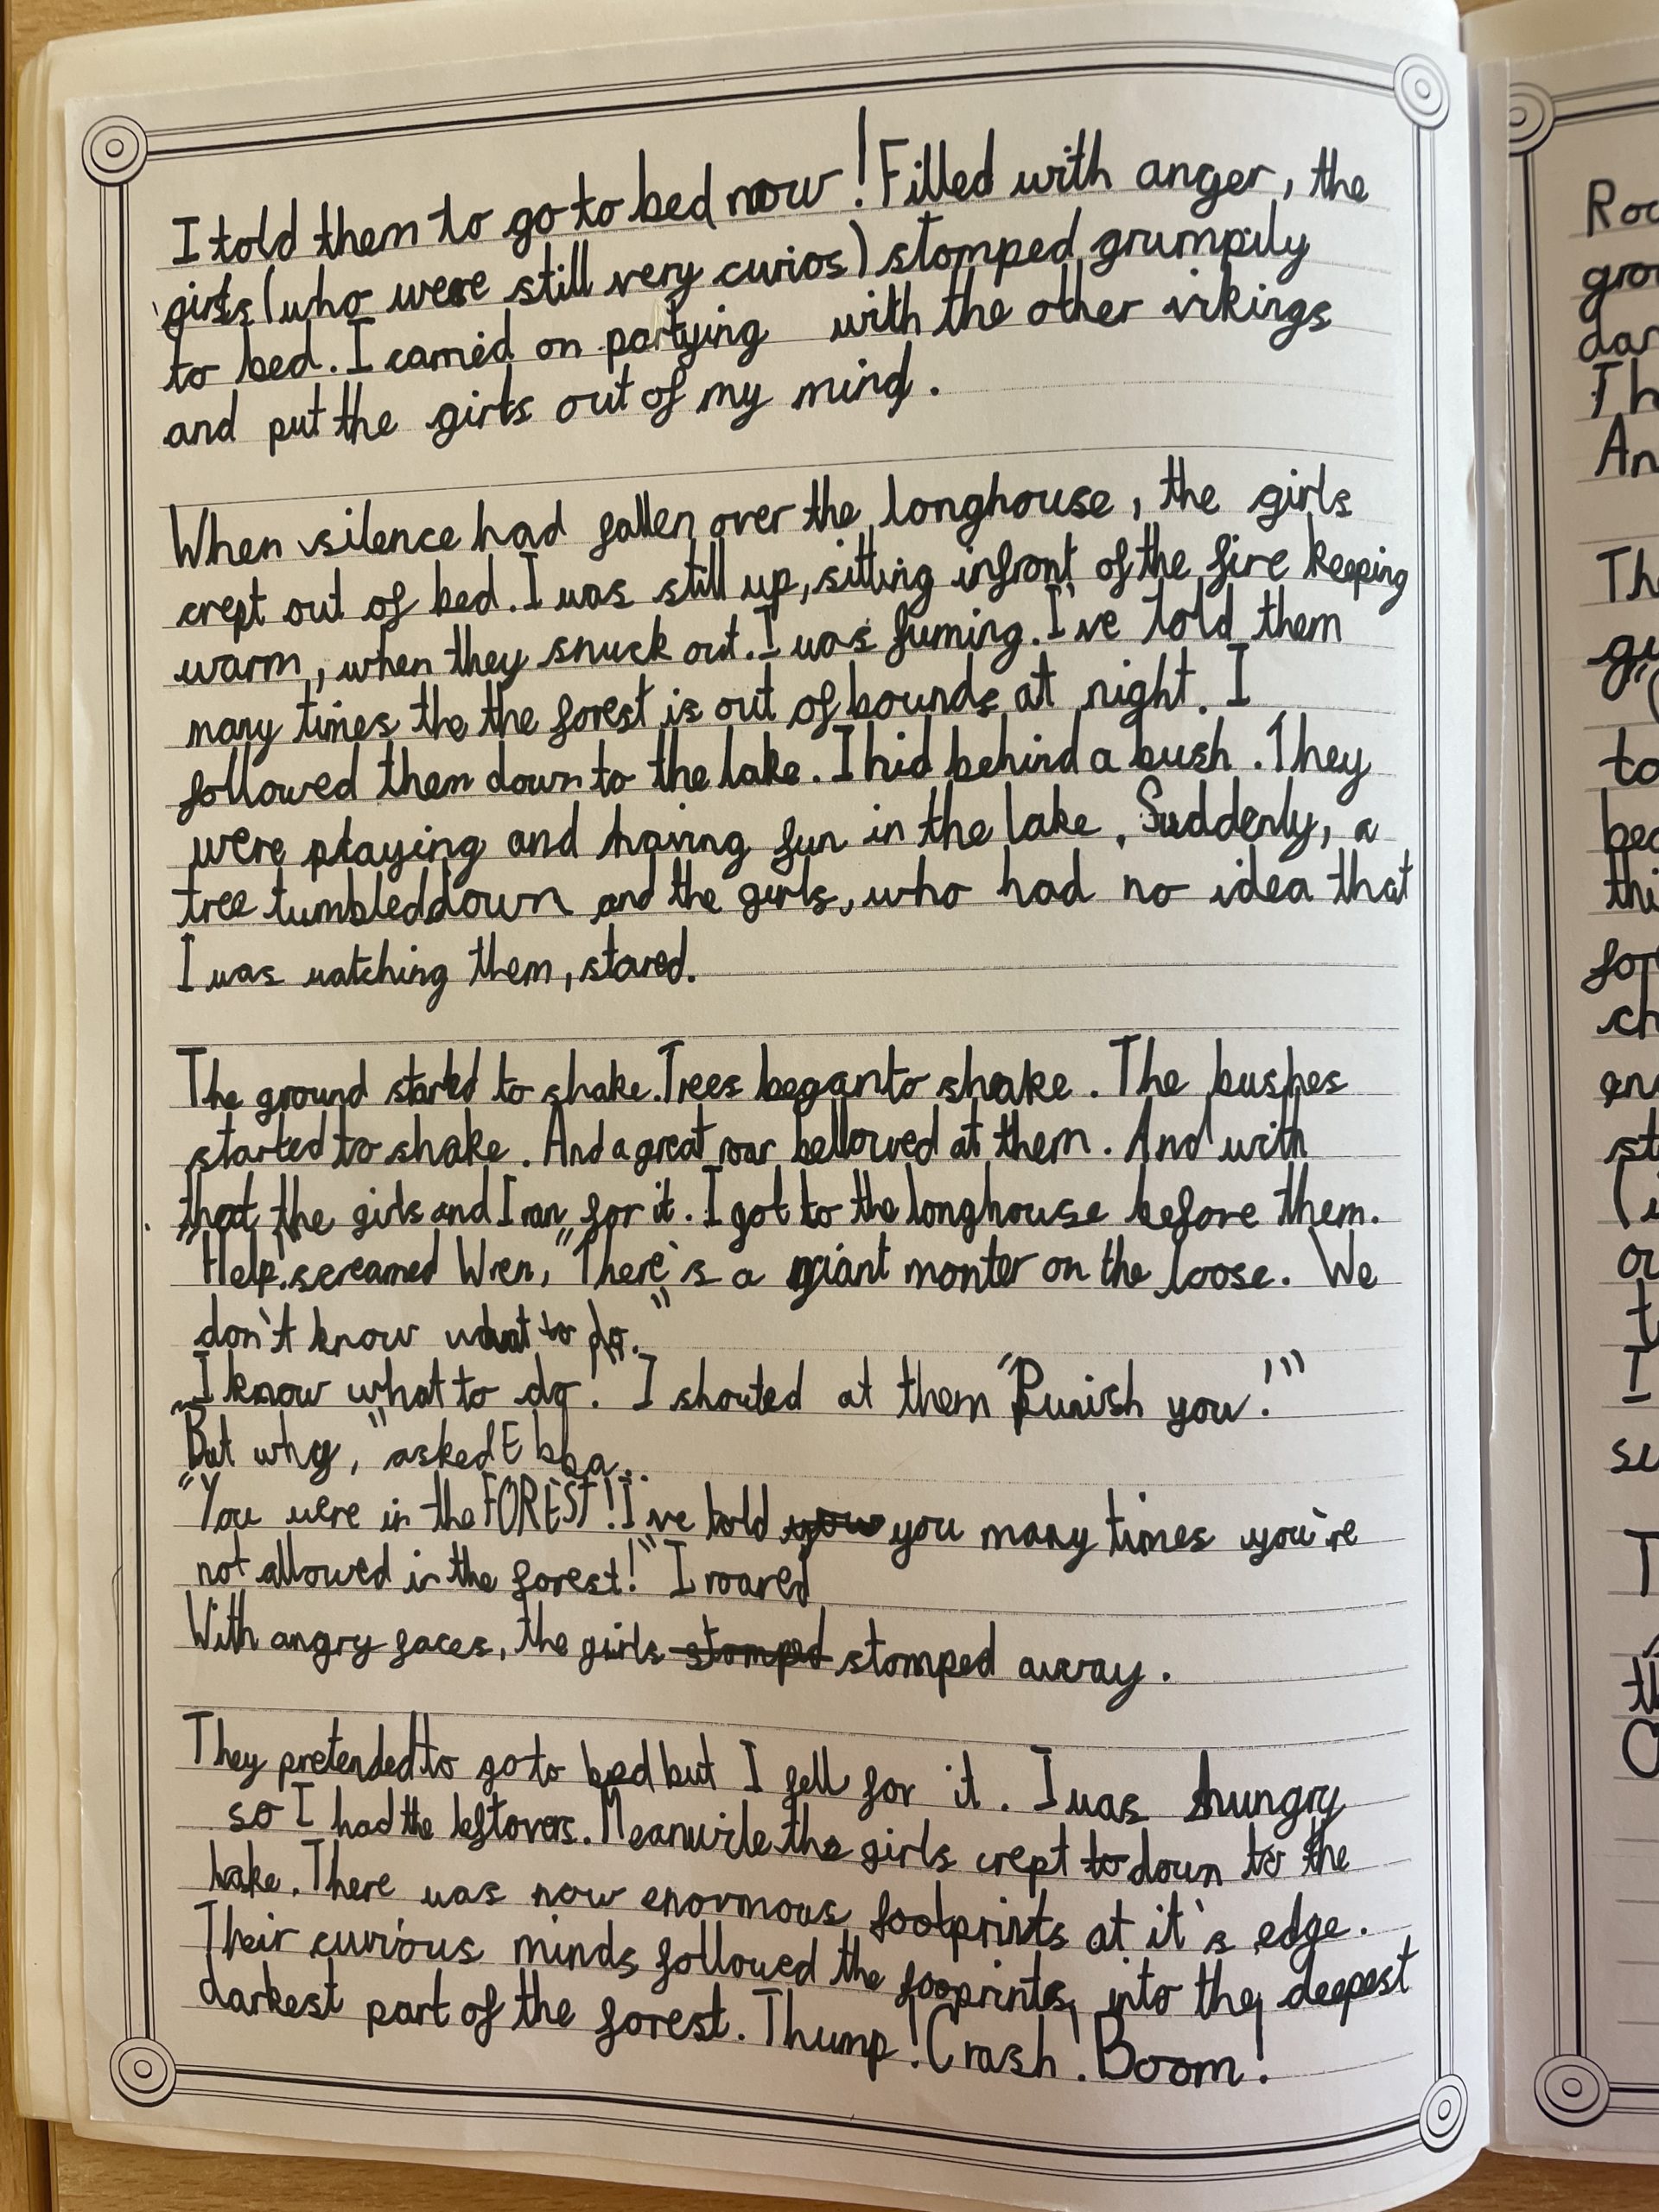 I told them to go to bed now! Filled with anger, the
girls (who were still very curios) stomped grumpily
to bed. I carried on partying with the other vikings
and put the girls out of my mind.
When silence had fallen over the longhouse, the girls
crept out of bed. I was still up, sitting infront of the fire keeping
warm, when they snuck out. I was fuming. I've told them
many times the the forest is out of bounds at night. I
followed them down to the lake. I hid behind a bush. They
were playing and having fun in the lake. Suddenly, a
tree tumbled down and the girls, who had no idea that
I was watching them, stared.
The ground started to shake. Trees began to shake. The bushes
started to shake. And a great roar bellowed at them. And with
that, the girls and I ran for it. I got to the longhouse before them.
"Help" screamed Wren, "There's a giant monter on the loose. We
don't know what to do."
"I know what to do!" I shouted at them "Punish you!"
But why," asked Ebba..
"You were in the FOREST! I've told you you many times you're
not allowed in the forest!" I roared
With angry faces, the girls stomped stomped away.
They pretended to go to bed but I fell for it. I was hungry
so I had the leftovers. Meanwile the girls crept to down to the
lake. There was now enormous footprints at it's edge.
Their curious minds followed the fooprints, into the deepest
darkest part of the forest. Thump! Crash! Boom!